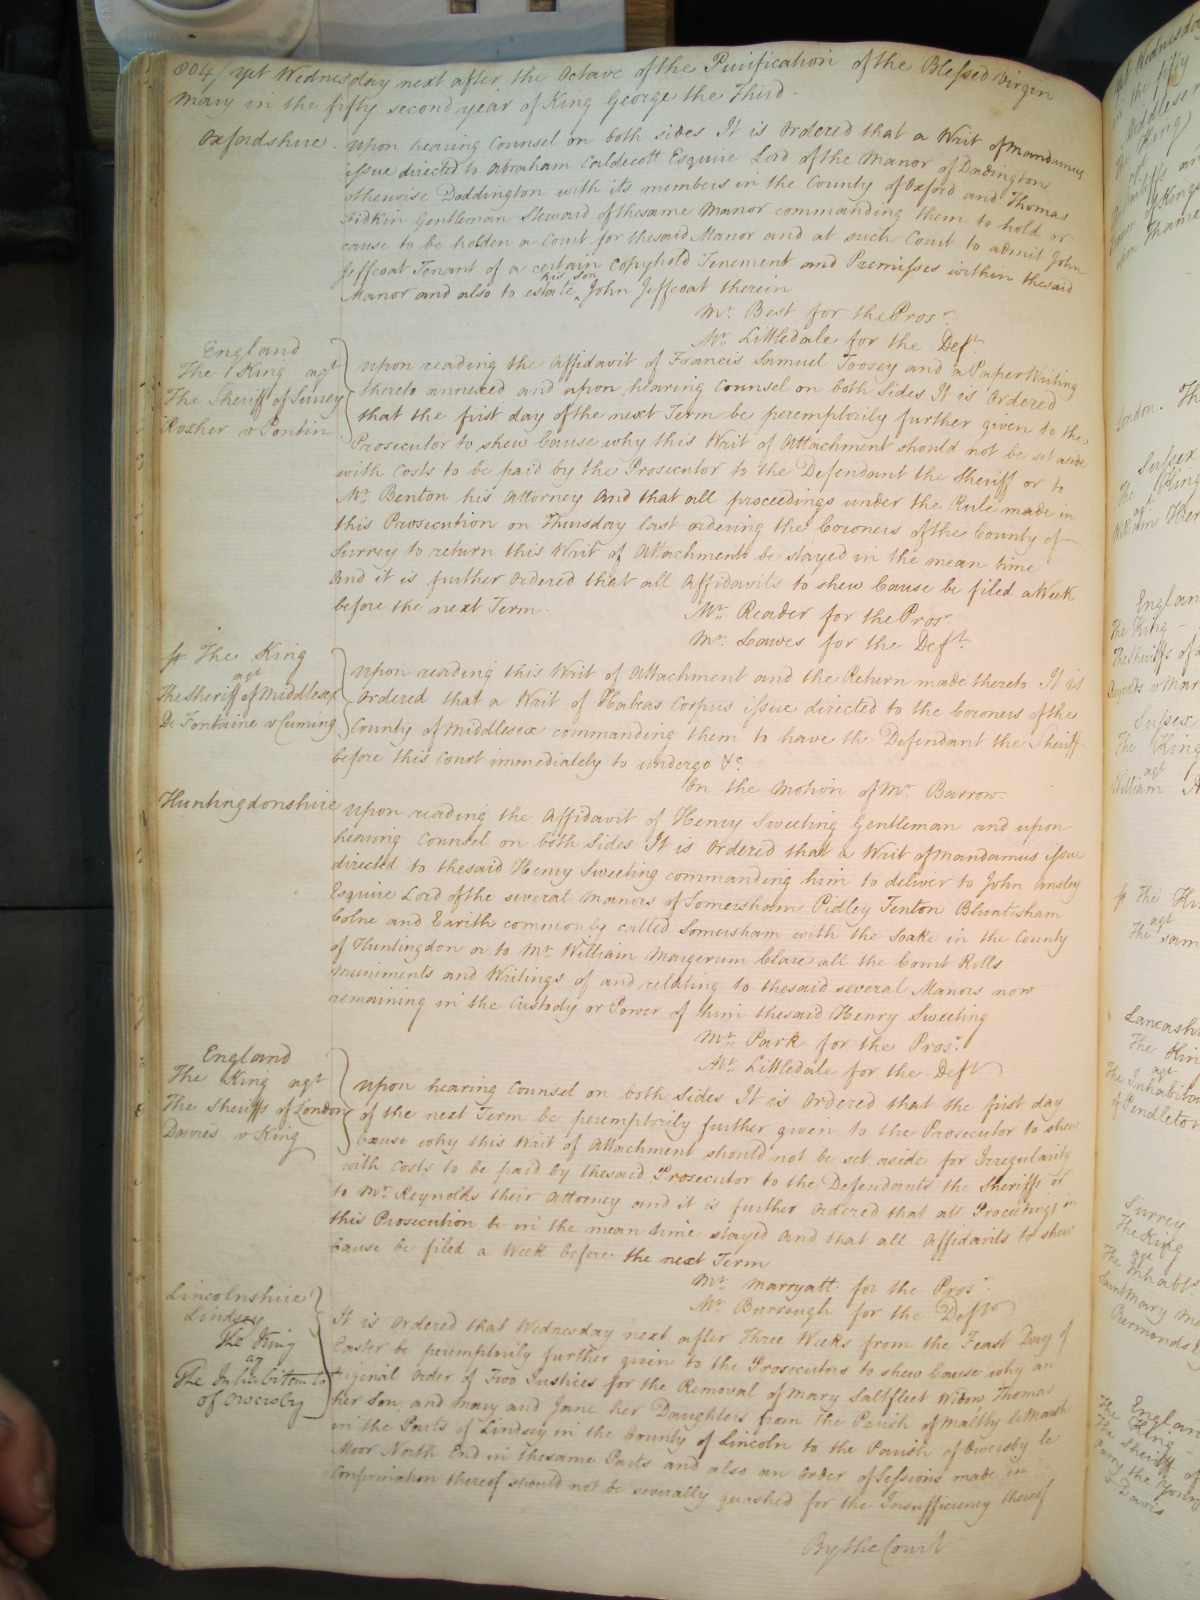 804/ yet Wednesday next after the Octave of the Purification of the Blessed Virgin
Mary in the fifty second year of King George the Third.
Oxfordshire. Upon hearing Counsel on both sides It is Ordered that a Writ of Mandamus
issue directed to Abraham Caldecott Esquire Lord of the Manor of Dadington
otherwise Doddington with its members in the County of Oxford and Thomas
Gentleman Steward of the same Manor commanding them to hold or
cause to be holden a Court for the said Manor and at such Court to admit John
Jeffcoat Tenant of a certain Copyhold Tenement and Premisses within the said
his son
Manor and also to estate John Jeffcoat therein
Mr. Best for the Prosr.
Mr. Littledale for the Deft.
England
The King agt
The Sheriff of Surrey
Rosher v Pontin
Upon reading the Affidavit of Francis Samuel Toosey and a Paper Writing
thereto annexed and upon hearing Counsel on both Sides It is Ordered
that the first day of the next Term be peremptorily further given to the
Prosecutor to shew Cause why this Writ of Attachment should not be set aside
with Costs to be paid by the Prosecutor to the Defendant the Sheriff or to
Mr. Benton his Attorney And that all proceedings under the Rule made in
this Prosecution on Thursday last ordering the Coroners of the County of
Surrey to return this Writ of Attachment be stayed in the mean time
And it is further Ordered that all Affidavits to shew Cause be filed a Week
before the next Term.
Mr. Reader for the Prosr.
Mr. Lawes for the Deft.
The King
agt
The Sheriff of Middlesex
De Fontaine v Cuming
Upon reading this Writ of Attachment and the Return made thereto It is
Ordered that a Writ of Habeas Corpus issue directed to the Coroners of the
County of Middlesex commanding them to have the Defendant the Sheriff
before this Court immediately to undergo &c.
On the Motion of Mr. Barrow.
Huntingdonshire Upon reading the Affidavit of Henry Sweeting Gentleman and upon
hearing Counsel on both Sides It is Ordered that a Writ of Mandamus issue
directed to the said Henry Sweeting commanding him to deliver to John Ansley
Esquire Lord of the several Manors of Somersham Pidley Fenton Bluntisham
Colne and Earith commonly called Somersham with the Soake in the County
of Huntingdon or to Mr. William Margerum Clare all the Court Rolls
Muniments and Writings of and relating to the said several Manors now
remaining in the Custody or Power of him the said Henry Sweeting
Mr. Park for the Prosr.
Mr. Littledale for the Deft
England
The King agt
The Sheriffs of London
Davies v King
Upon hearing Counsel on both Sides It is Ordered that the first day
of the next Term be peremptorily further given to the Prosecutor to shew
Cause why this Writ of Attachment should not be set aside for Irregularity
with Costs to be paid by the said Prosecutor to the Defendants the Sheriffs or
to Mr. Reynolds their Attorney and it is further Ordered that all Proceedings in
this Prosecution be in the mean time stayed And that all Affidavits to shew
Cause be filed a Week before the next Term
Mr. Marryatt for the Prosr.
Mr. Burrough for the Defts
Lincolnshire
Lindsey
The King
ag
The Inhabitants
of Owersby
It is Ordered that Wednesday next after Three Weeks from the Feast Day of
Easter be peremptorily further given to the Prosecutors to shew Cause why an
Original Order of Two Justices for the Removal of Mary Saltfleet Widow Thomas
her Son, and Mary and Jane her Daughters from the Parish of Maltby le Marsh
in the Parts of Lindsey in the County of Lincoln to the Parish of Owersby le
Moor North End in the same Parts and also an Order of Sessions made in
Confirmation thereof should not be severally quashed for the Insufficiency thereof
By the Court
London. Th
Sussex
The King
agt
William Her
England
The King -
The Sheriffs of
Reynolds v Mar
Sussex
The King
agt
William A
The Ki
agt
The sam
Lancash
The Kin
agt
The Inhabitan
of Pendleton
Surrey
The King
agt
The Inhabts
Saint Mary Ma
Bermondse
Englan
The King
The Sheriff of
Parry the Young
v Davis